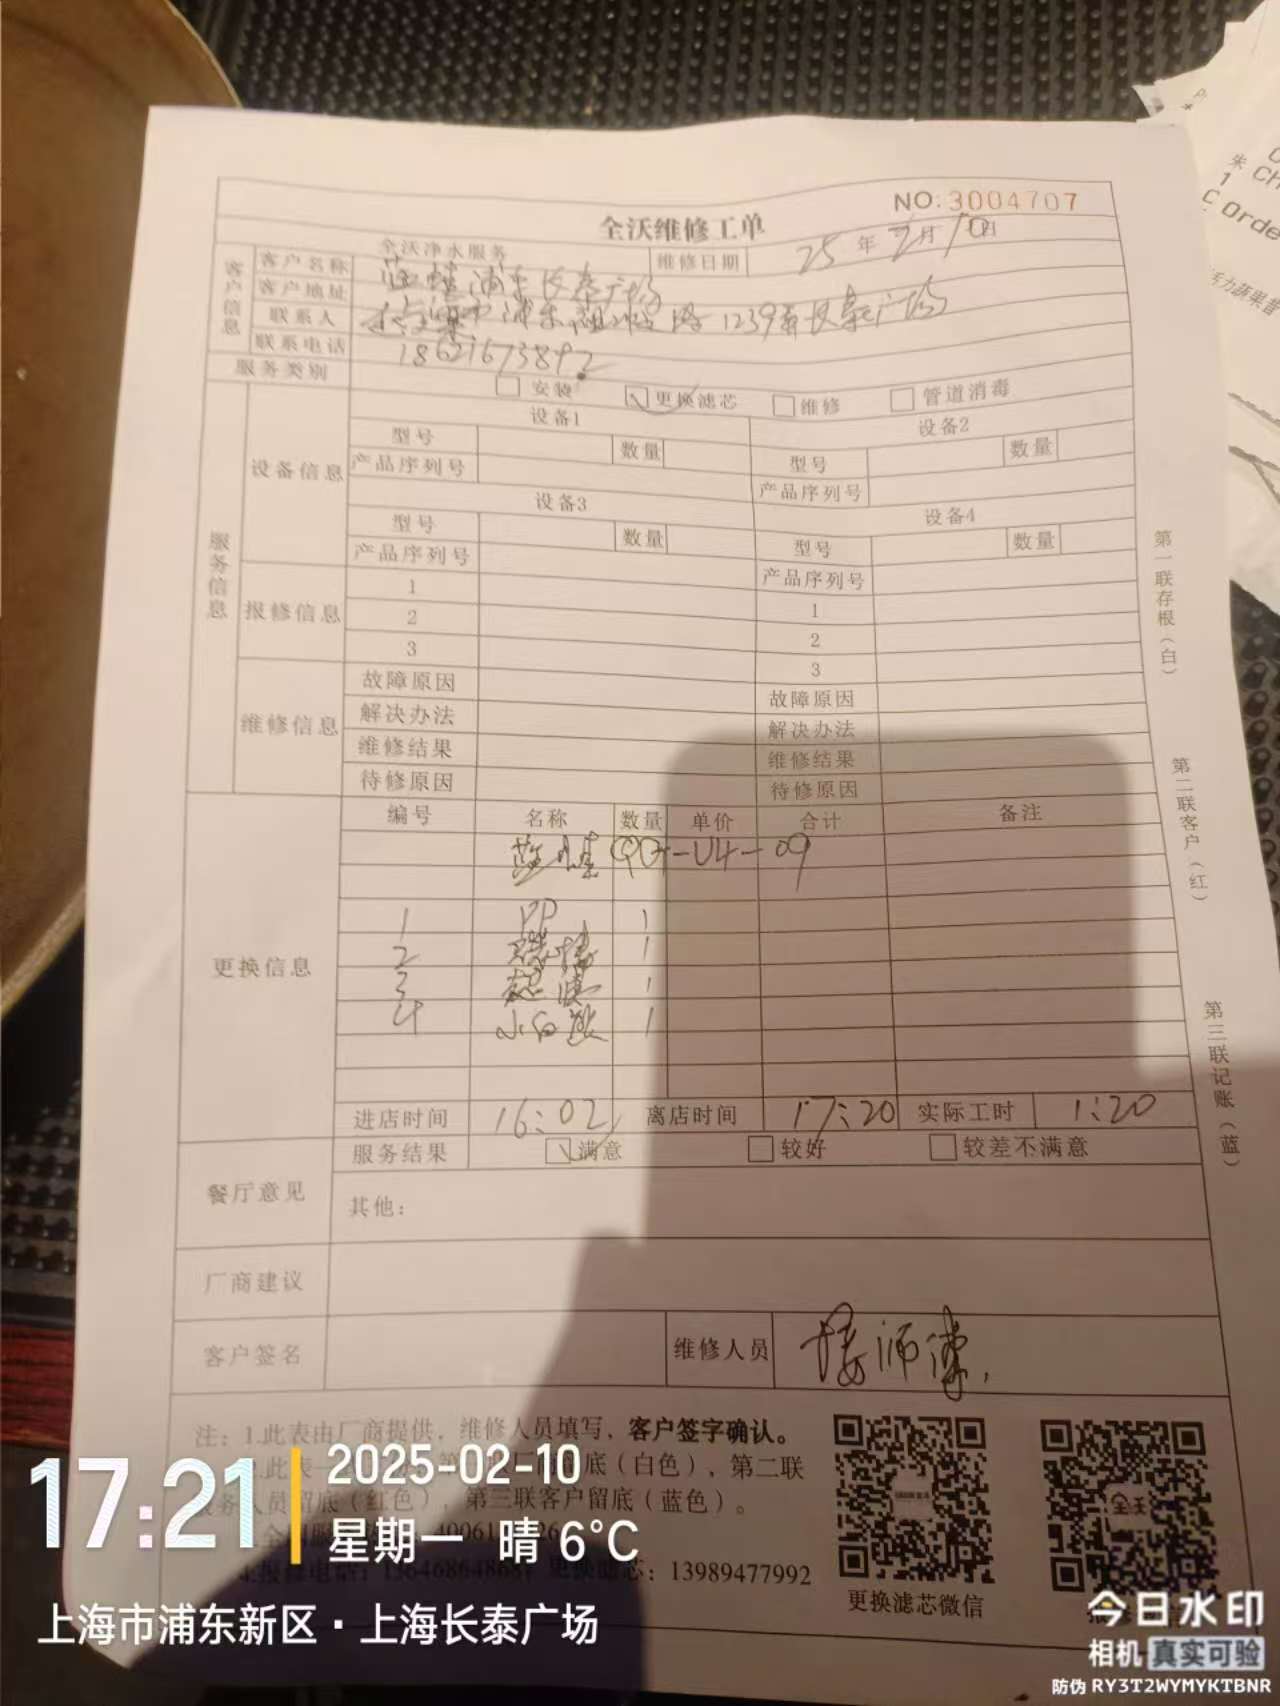 NO:3004707
全沃维修工单
全沃净水服务
维修日期 25年2月10日
客户信息
客户名称 蓝蛙浦东长泰广场
客户地址 上海市浦东 路1239弄长泰广场
联系人
联系电话 18621673892
服务类别 安装 更换滤芯 维修 管道消毒
服务信息
设备信息
设备1 设备2
型号 数量 型号 数量
产品序列号 产品序列号
设备3 设备4
型号 数量 型号 数量
产品序列号 产品序列号
报修信息
1 1
2 2
3 3
维修信息
故障原因 故障原因
解决办法 解决办法
维修结果 维修结果
待修原因 待修原因
更换信息
编号 名称 数量 单价 合计 备注
-U4-09
1 PP 1
2 1
3 1
4 小白 1
进店时间 16:02 离店时间 17:20 实际工时 1:20
餐厅意见
服务结果 满意 较好 较差不满意
其他:
厂商建议
客户签名 维修人员 师傅
注:1.此表由厂商提供,维修人员填写,客户签字确认。
底(白色),第二联
务人员留底(红色),第三联客户留底(蓝色)。
更换滤芯:13989477992
更换滤芯微信
第一联存根(白)
第二联客户(红)
第三联记账(蓝)
17:21
2025-02-10
星期一 晴 6°C
上海市浦东新区·上海长泰广场
今日水印
相机 真实可验
防伪 RY3T2WYMYKTBNR